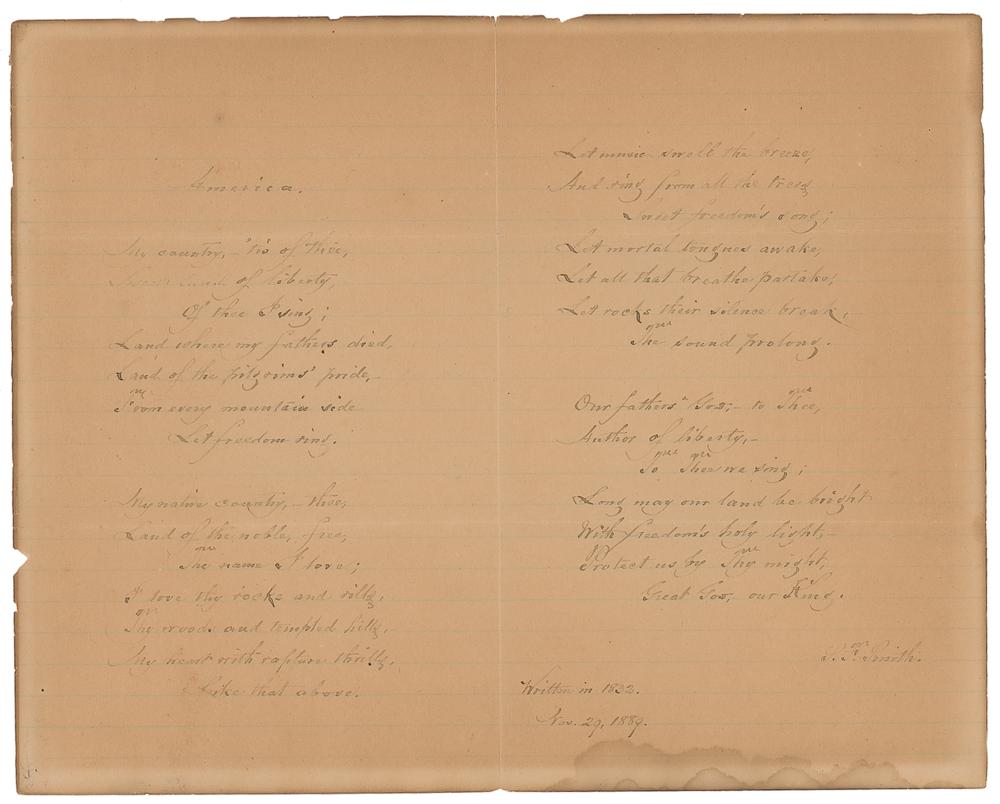 America.
My country, – 'tis of thee,
Sweet land of liberty,
Of thee I sing;
Land where my fathers died,
Land of the pilgrims' pride, –
From every mountain side
Let freedom ring.
My native country, – thee,
Land of the noble, free,
Thy name I love;
I love thy rocks and rills,
Thy woods and templed hills, –
My heart with rapture thrills,
Like that above.
Let music swell the breeze,
And ring from all the trees
Sweet freedom's song;
Let mortal tongues awake,
Let all that breathe partake,
Let rocks their silence break,
The sound prolong.
Our fathers' God, – to Thee,
Author of liberty, –
To Thee we sing;
Long may our land be bright
With freedom's holy light, –
Protect us by Thy might,
Great God, our King.
S. F. Smith.
Written in 1832.
Nov. 29, 1889.